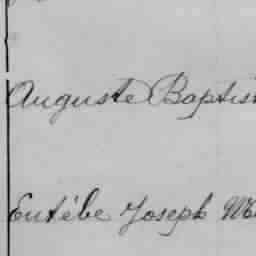 Auguste Baptis
Eutébe Joseph